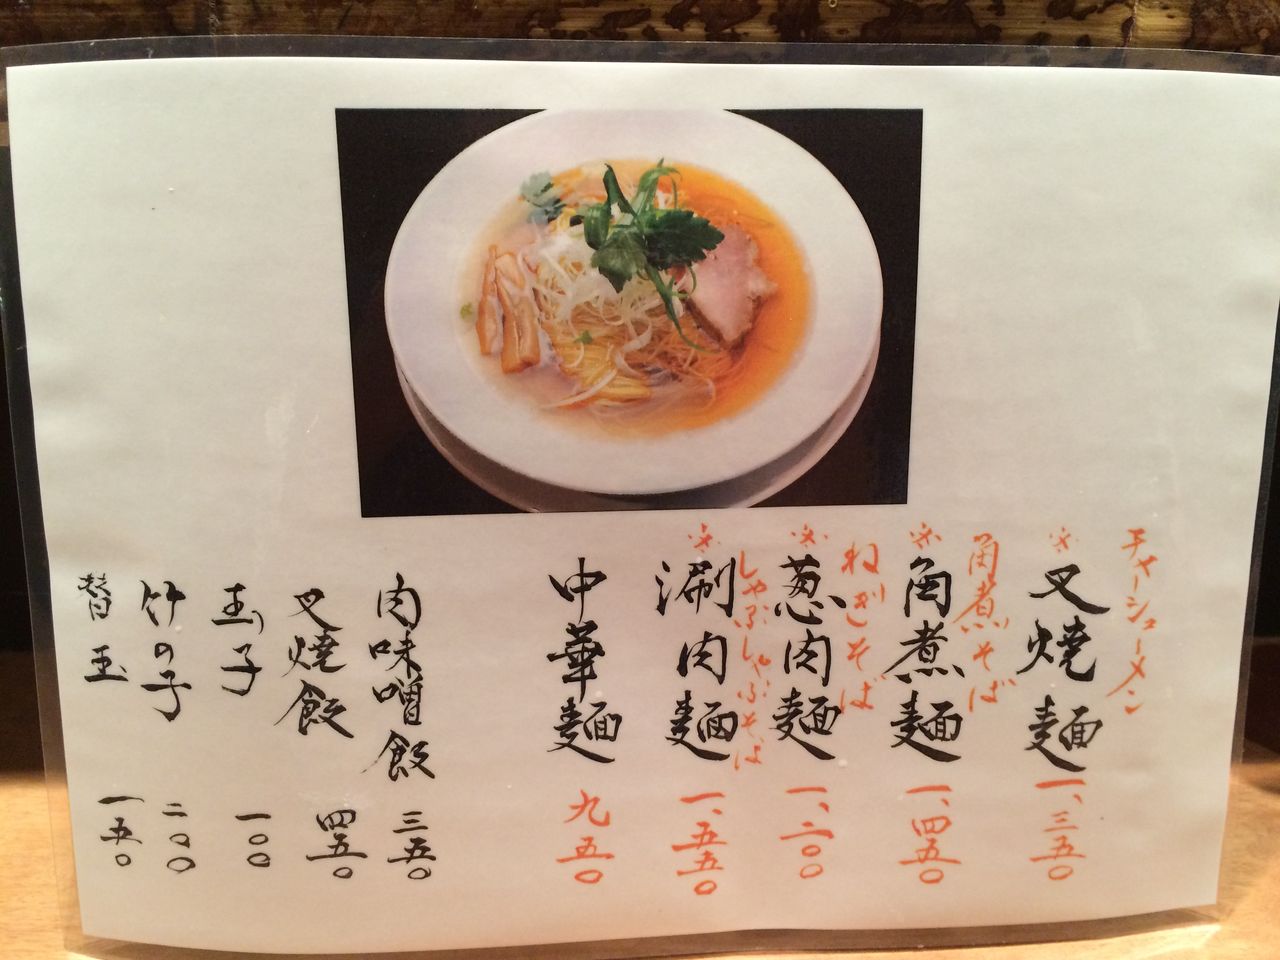 チャーシューメン
※叉焼麺
一、三五〇
角煮そば
※角煮麺
一、四五〇
ねぎそば
※葱肉麺
一、二〇〇
しゃぶしゃぶそば
※涮肉麺
一、五五〇
中華麺
九五〇
肉味噌飯
三五〇
叉焼飯
四五〇
玉子
一〇〇
竹の子
二〇〇
替玉
一五〇